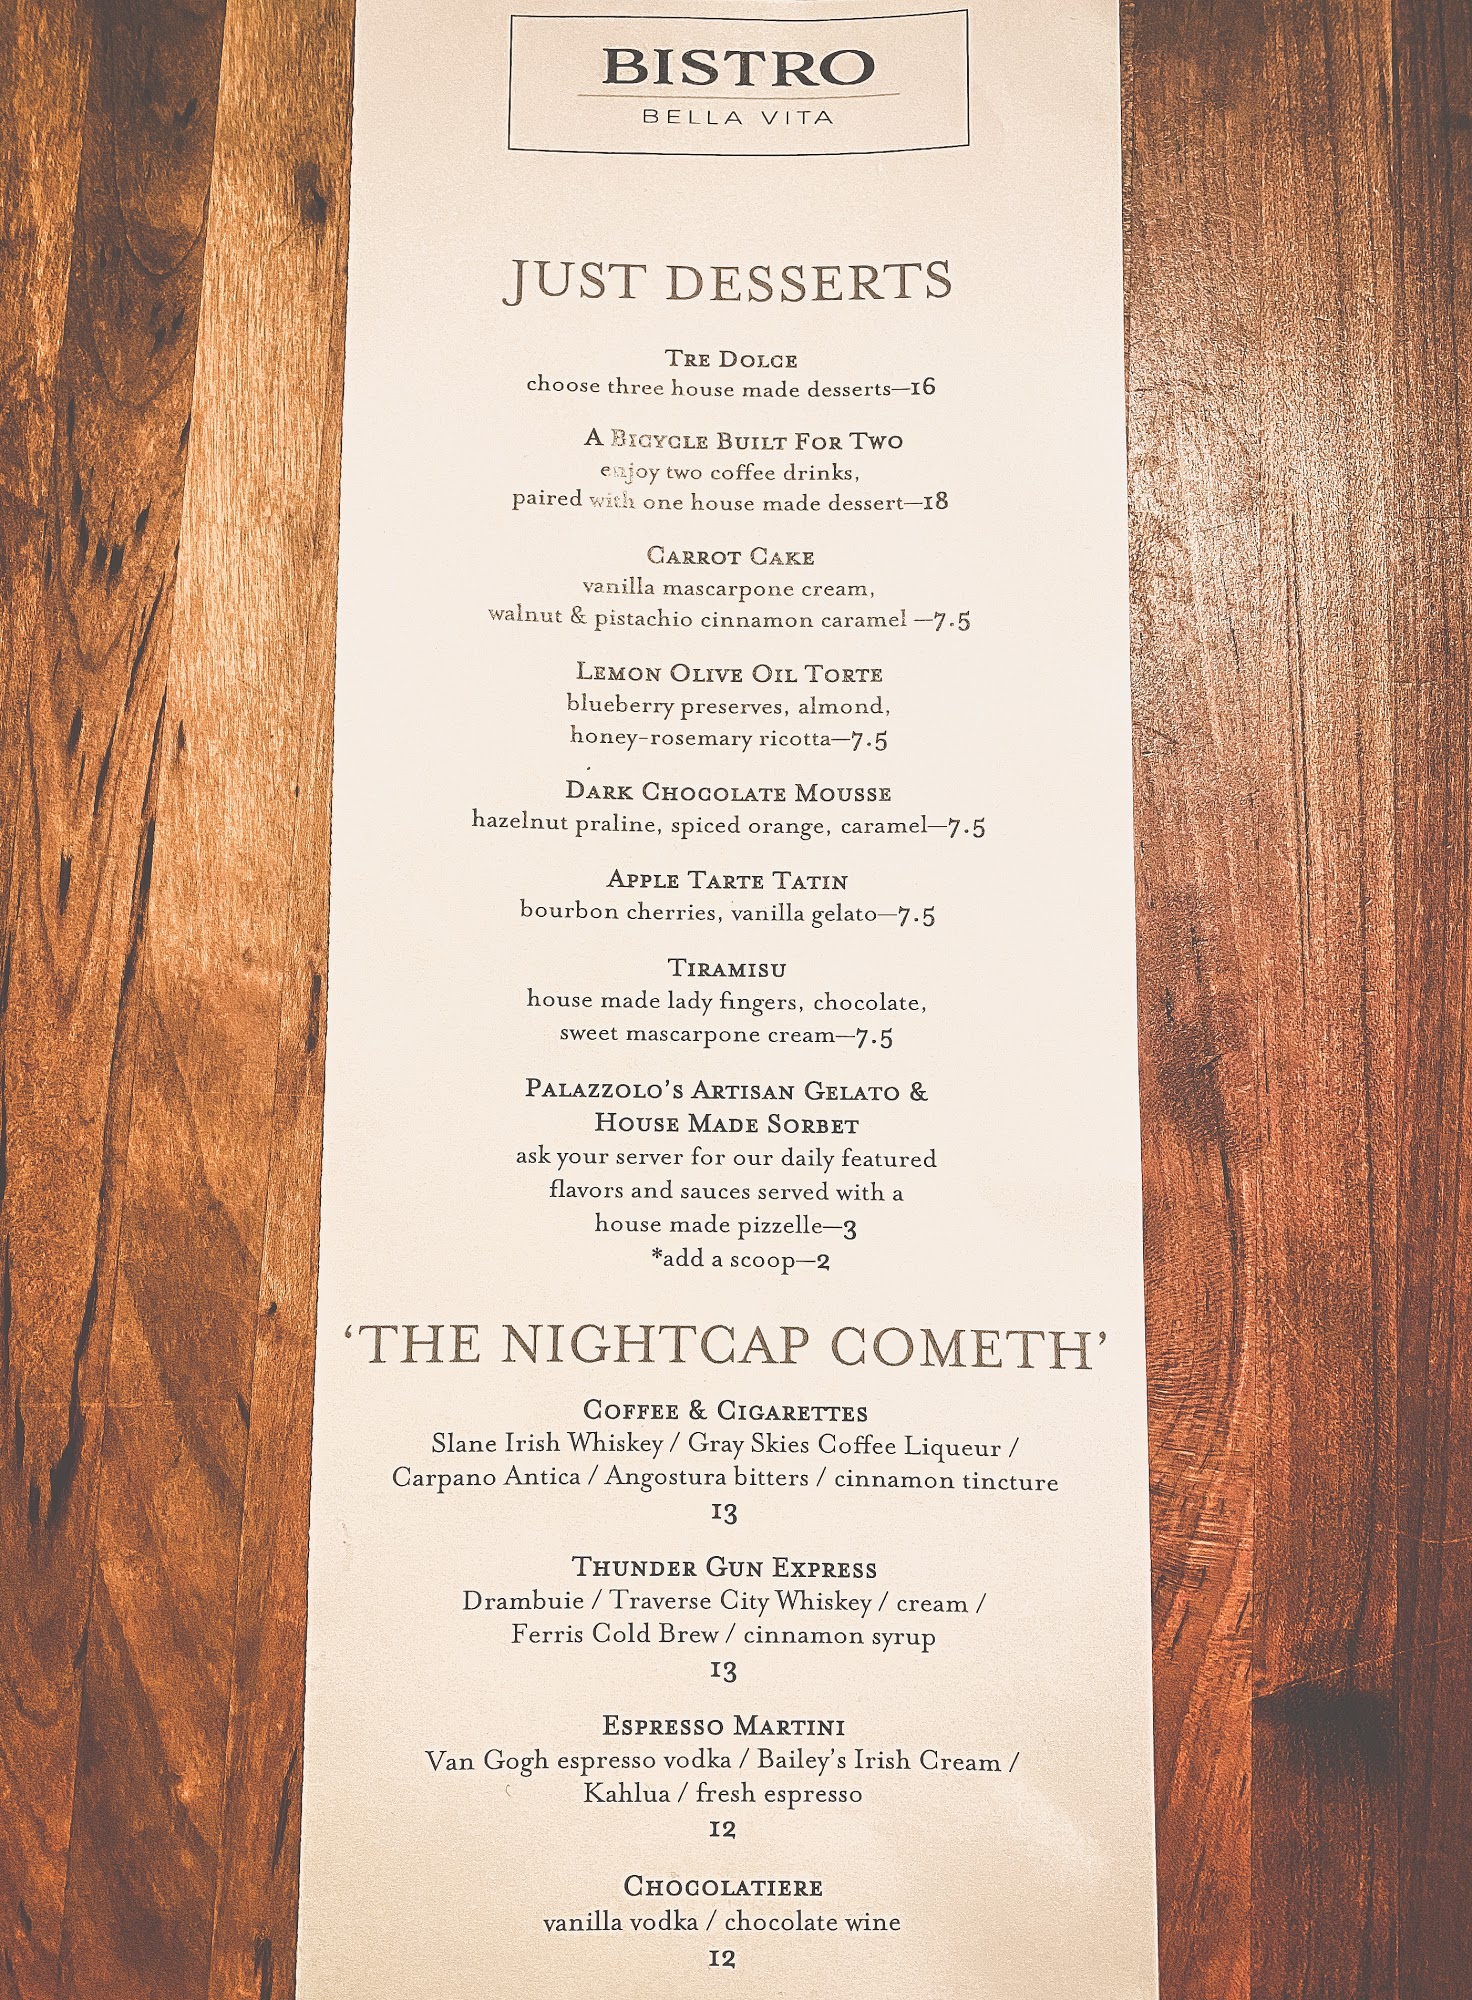 BISTRO
BELLA VITA
JUST DESSERTS
TRE DOLCE
choose three house made desserts—16
A BICYCLE BUILT FOR TWO
enjoy two coffee drinks,
paired with one house made dessert—18
CARROT CAKE
vanilla mascarpone cream,
walnut & pistachio cinnamon caramel —7.5
LEMON OLIVE OIL TORTE
blueberry preserves, almond,
honey-rosemary ricotta—7.5
DARK CHOCOLATE MOUSSE
hazelnut praline, spiced orange, caramel—7.5
APPLE TARTE TATIN
bourbon cherries, vanilla gelato—7.5
TIRAMISU
house made lady fingers, chocolate,
sweet mascarpone cream—7.5
PALAZZOLO'S ARTISAN GELATO &
HOUSE MADE SORBET
ask your server for our daily featured
flavors and sauces served with a
house made pizzelle—3
*add a scoop—2
'THE NIGHTCAP COMETH'
COFFEE & CIGARETTES
Slane Irish Whiskey / Gray Skies Coffee Liqueur /
Carpano Antica / Angostura bitters / cinnamon tincture
13
THUNDER GUN EXPRESS
Drambuie / Traverse City Whiskey / cream /
Ferris Cold Brew / cinnamon syrup
13
ESPRESSO MARTINI
Van Gogh espresso vodka / Bailey's Irish Cream /
Kahlua / fresh espresso
12
CHOCOLATIERE
vanilla vodka / chocolate wine
12